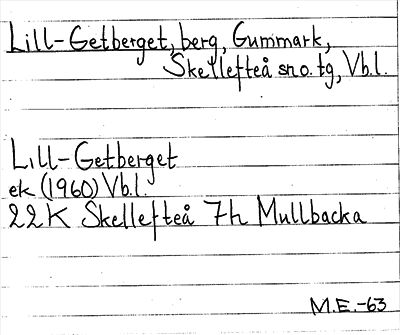 Lill-Getberget, berg, Gummark,
Skellefteå sn o. tg, Vb.l.
Lill-Getberget
ek (1960) Vb.l.
22K Skellefteå 7h Mullbacka
M.E.-63